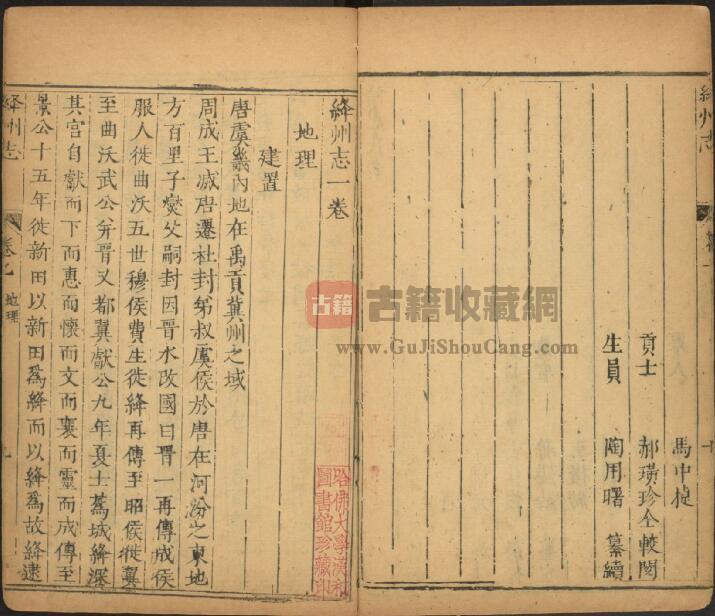 絳州志
馬中
貢士 郝璜珍仝較閱
生員 陶用曙 纂續
絳州志一卷
地理
建置
唐虞畿內地在禹貢冀州之域
周成王滅唐遷社封弟叔虞侯於唐在河汾之東地
方百里子燮父嗣封因晉水改國曰晉一再傳成侯
服人徙曲沃五世穆侯費生徙絳再傳至昭侯徙翼
至曲沃武公并晉又都翼獻公九年夏士蒍城絳深
其宮自獻而下而惠而懷而文而襄而靈而成傳至
景公十五年徙新田以新田爲絳而以絳爲故絳逮
絳州志 卷之 地理 九
哈佛大學漢和
圖書館珍藏印
古籍 古籍收藏網
www.GuJiShouCang.com